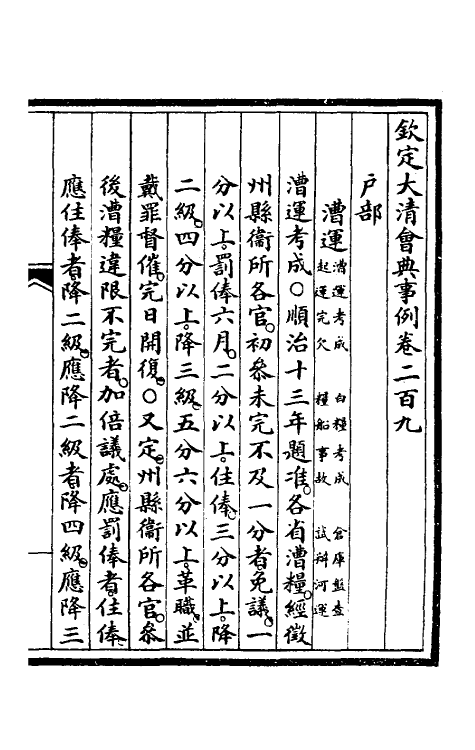 欽定大清會典事例卷二百九
戶部
漕運漕運考成 白糧考成 倉庫盤查
起運完欠 糧船事故 試辦河運
漕運考成○順治十三年題准。各省漕糧。經徵
州縣衞所各官。初參未完不及一分者免議。一
分以上。罰俸六月。二分以上。住俸。三分以上。降
二級。四分以上。降三級。五分六分以上。革職。並
戴罪督催。完日開復。○又定。州縣衞所各官。參
後漕糧違限不完者。加倍議處。應罰俸者。住俸。
應住俸者降二級。應降二級者。降四級。應降三